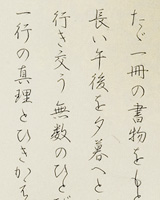 たゞ一冊の書物をも
長い午後を夕暮へと
行き交う無数のひとび
一行の真理とひきかえ